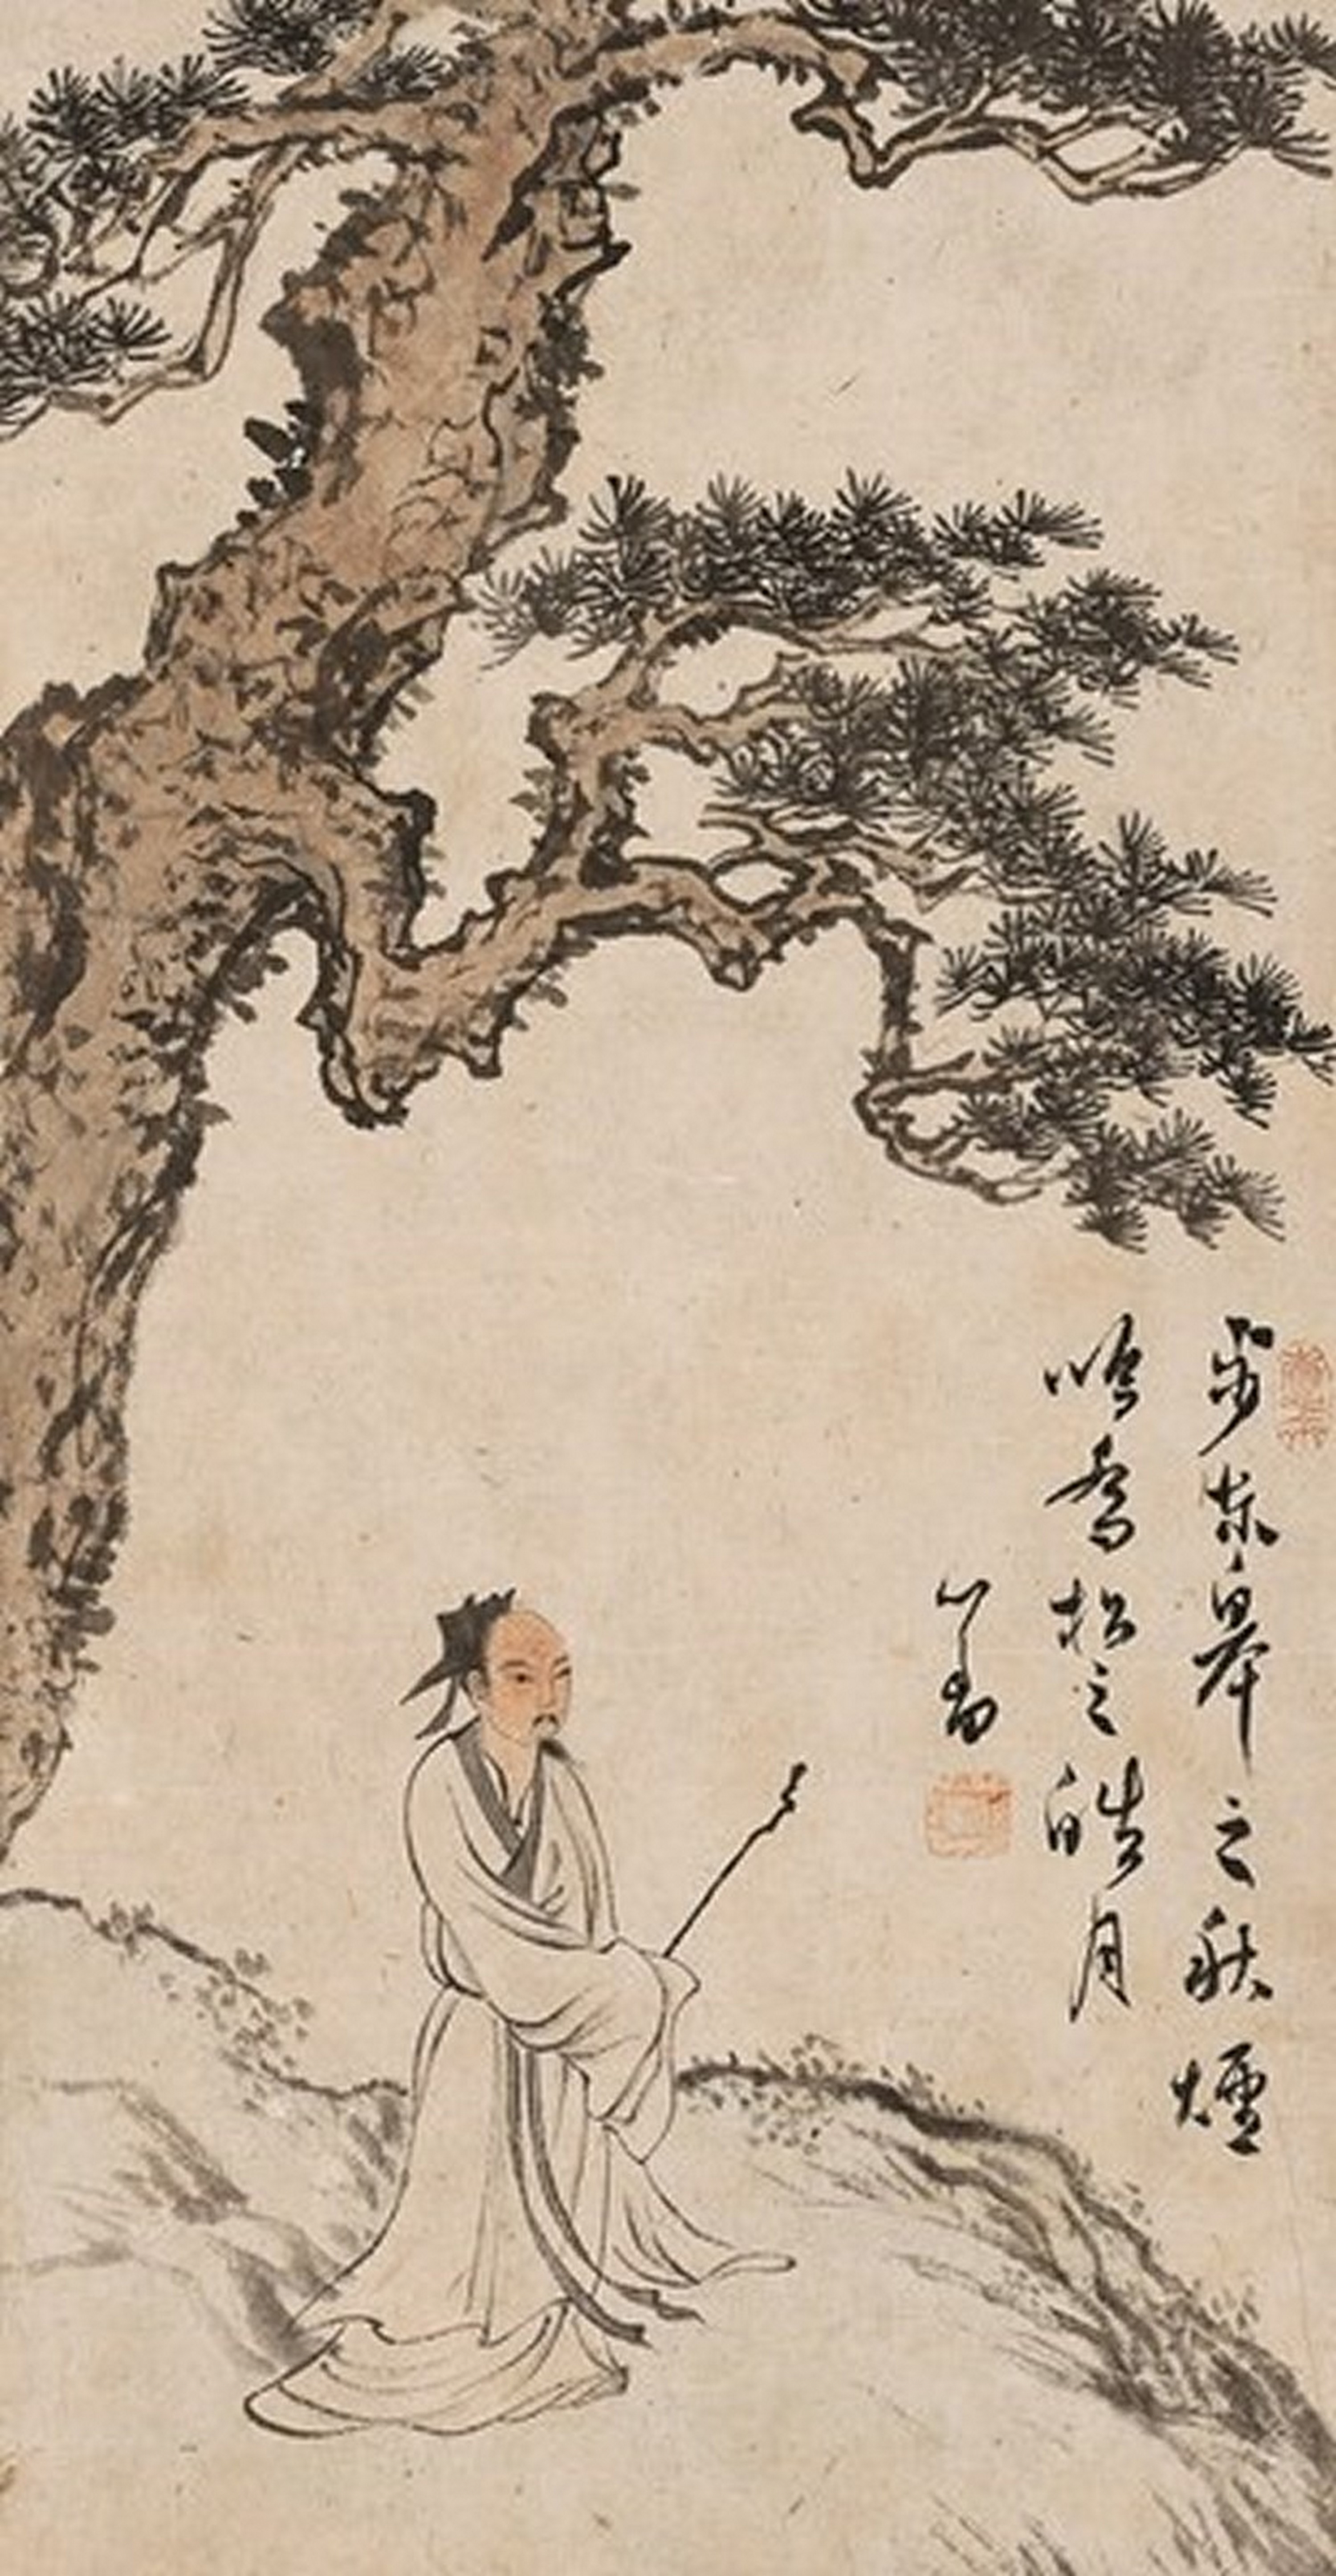 步東皋之秋煙
吟喬松之皓月
心畬